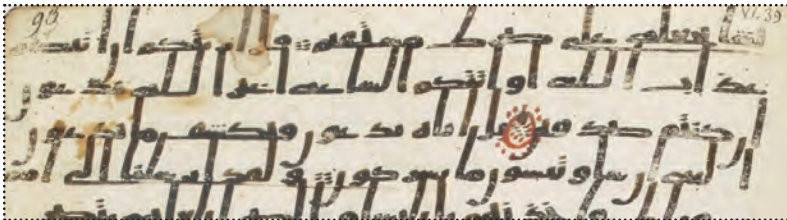 98 VI. 39
يشا يجعله على صرط مستقيم قل اريتكم ان اتيكم
عذاب الله او اتتكم الساعه اغير الله تدعون
ان كنتم صدقين بل اياه تدعون فيكشف ما تدعون
اليه ان شا وتنسون ما تشركون ولقد ارسلنا الى امم